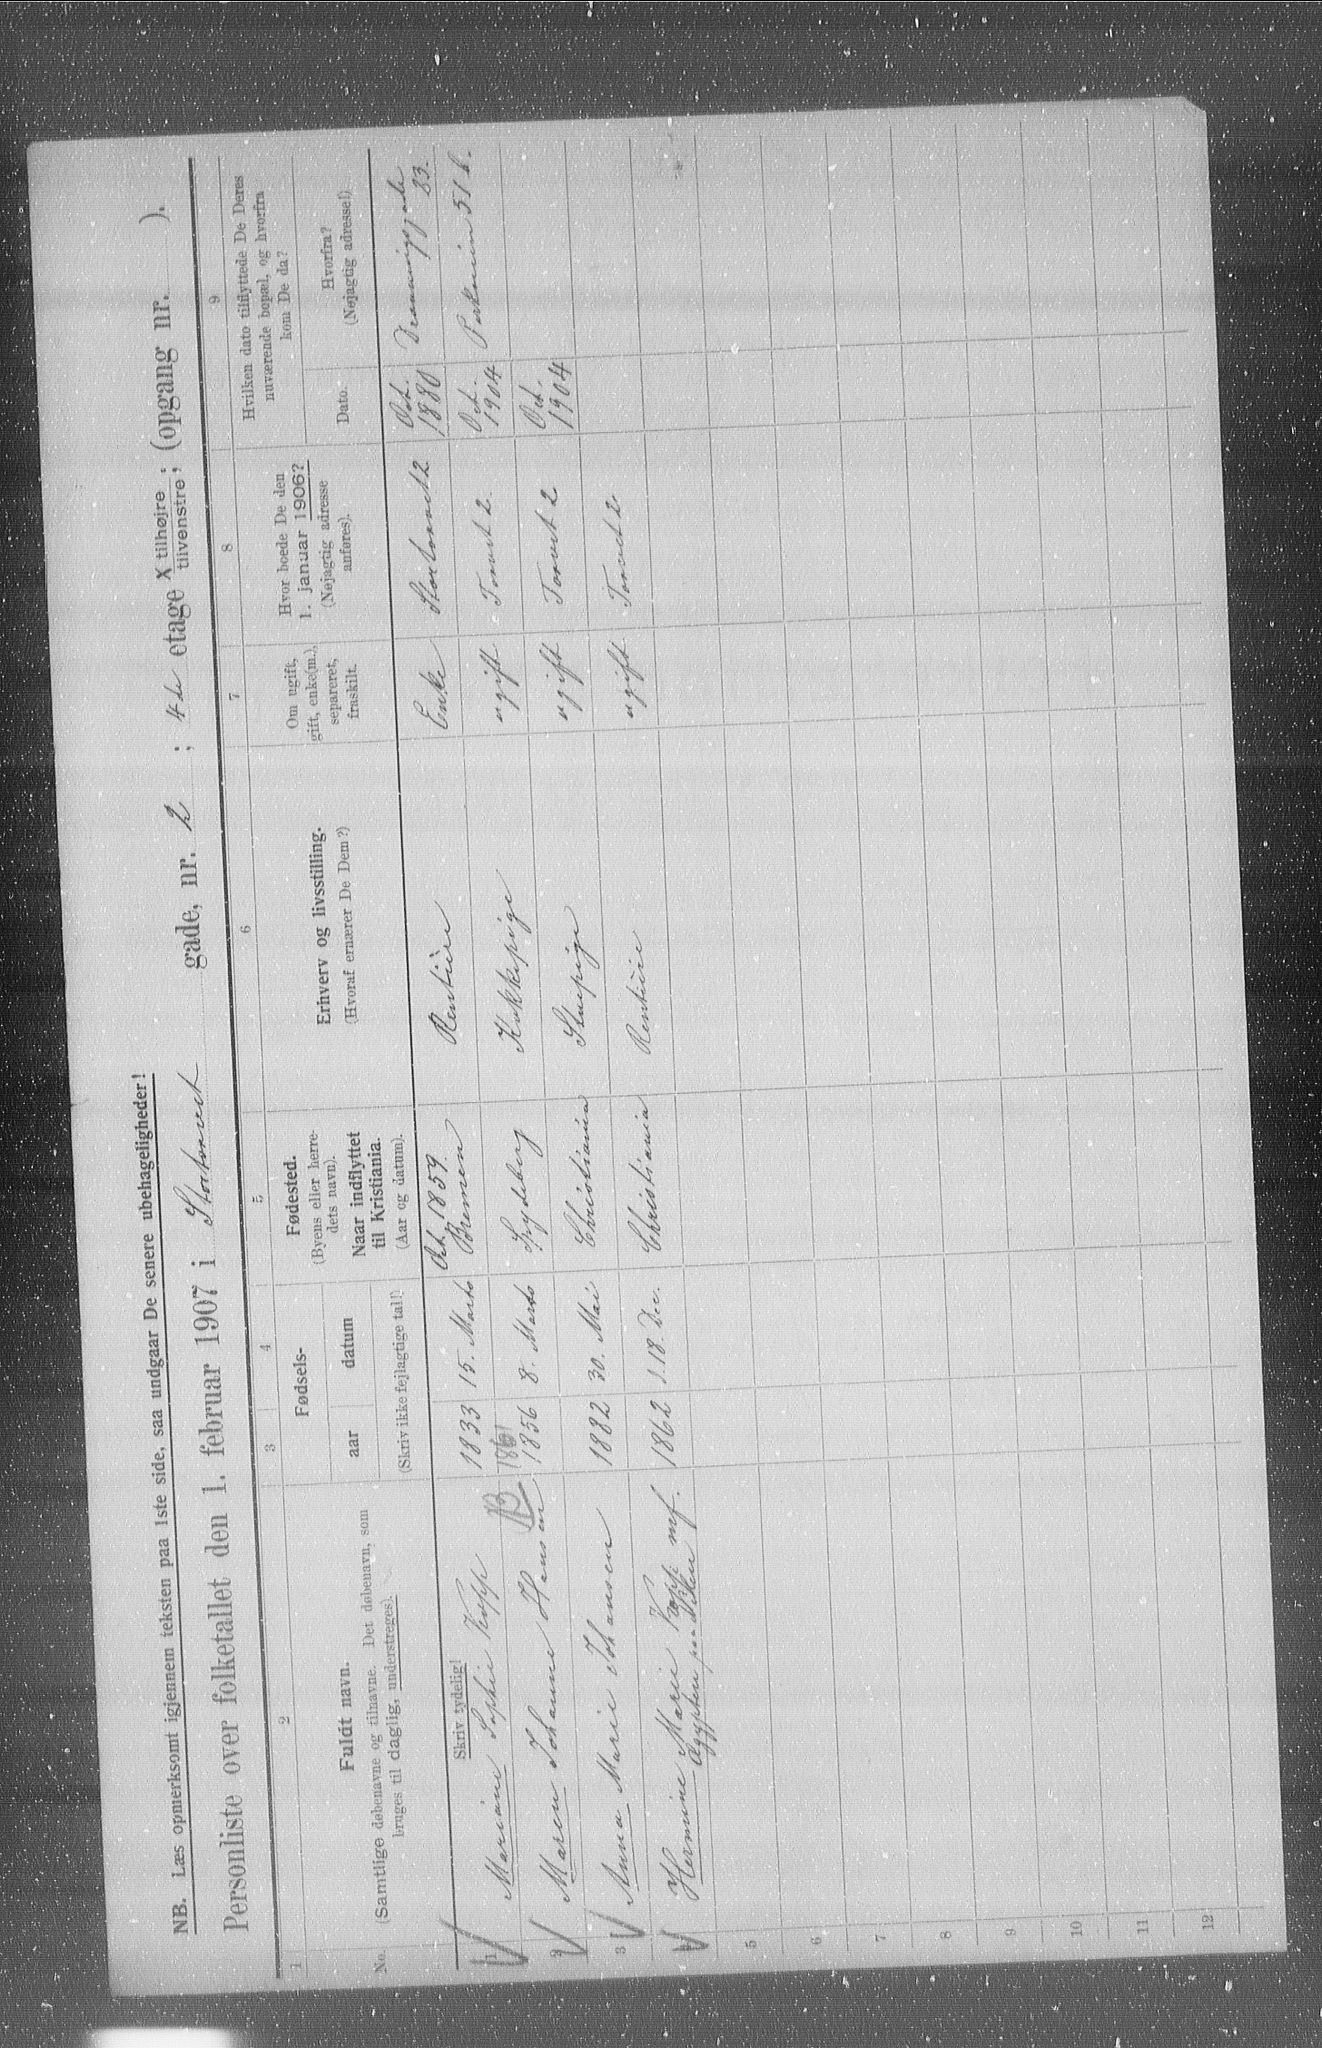 NB. Læs opmerksomt igjennem teksten paa 1ste side, saa undgaar De senere ubehageligheder!
Personliste over folketallet den 1. februar 1907 i Stortorvet gade, nr. 2 ; 4de etage X tilhøjre / tilvenstre ; (opgang nr. ).
1 2 3 4 5 6 7 8 9
No.
Fuldt navn.
(Samtlige døbenavne og tilnavne. Det døbenavn, som
bruges til daglig, understreges).
Fødsels-
aar datum
(Skriv ikke fejlagtige tal!)
Fødested.
(Byens eller herre-
dets navn).
Naar indflyttet
til Kristiania.
(Aar og datum).
Erhverv og livsstilling.
(Hvoraf ernærer De Dem?)
Om ugift,
gift, enke(m.),
separeret,
fraskilt.
Hvor boede De den
1. januar 1906?
(Nøjagtig adresse
anføres).
Hvilken dato tilflyttede De Deres
nuværende bopæl, og hvorfra
kom De da?
Dato.
Hvorfra?
(Nøjagtig adresse!)
Skriv tydelig!
Oct. 1859.
1 Mariane Sophie Kopp 1833 15. Marts Bremen Rentière Enke Stortorvet 2 Oct. 1880 Dronningsgade 23.
1861
2 Maren Johanne Hansen B 1856 8. Marts Spydeberg Kokkepige ugift Torvet 2. Oct. 1904 Parkveien 51 b.
3 Anna Marie Johansen 1882 30. Mai Christiania Stuepige ugift Torvet 2 Oct. 1904
4 Hermine Marie Kopp mf. 1862 18. Dec. Christiania Rentière ugift Torvet 2
Ægypten paa
5
6
7
8
9
10
11
12